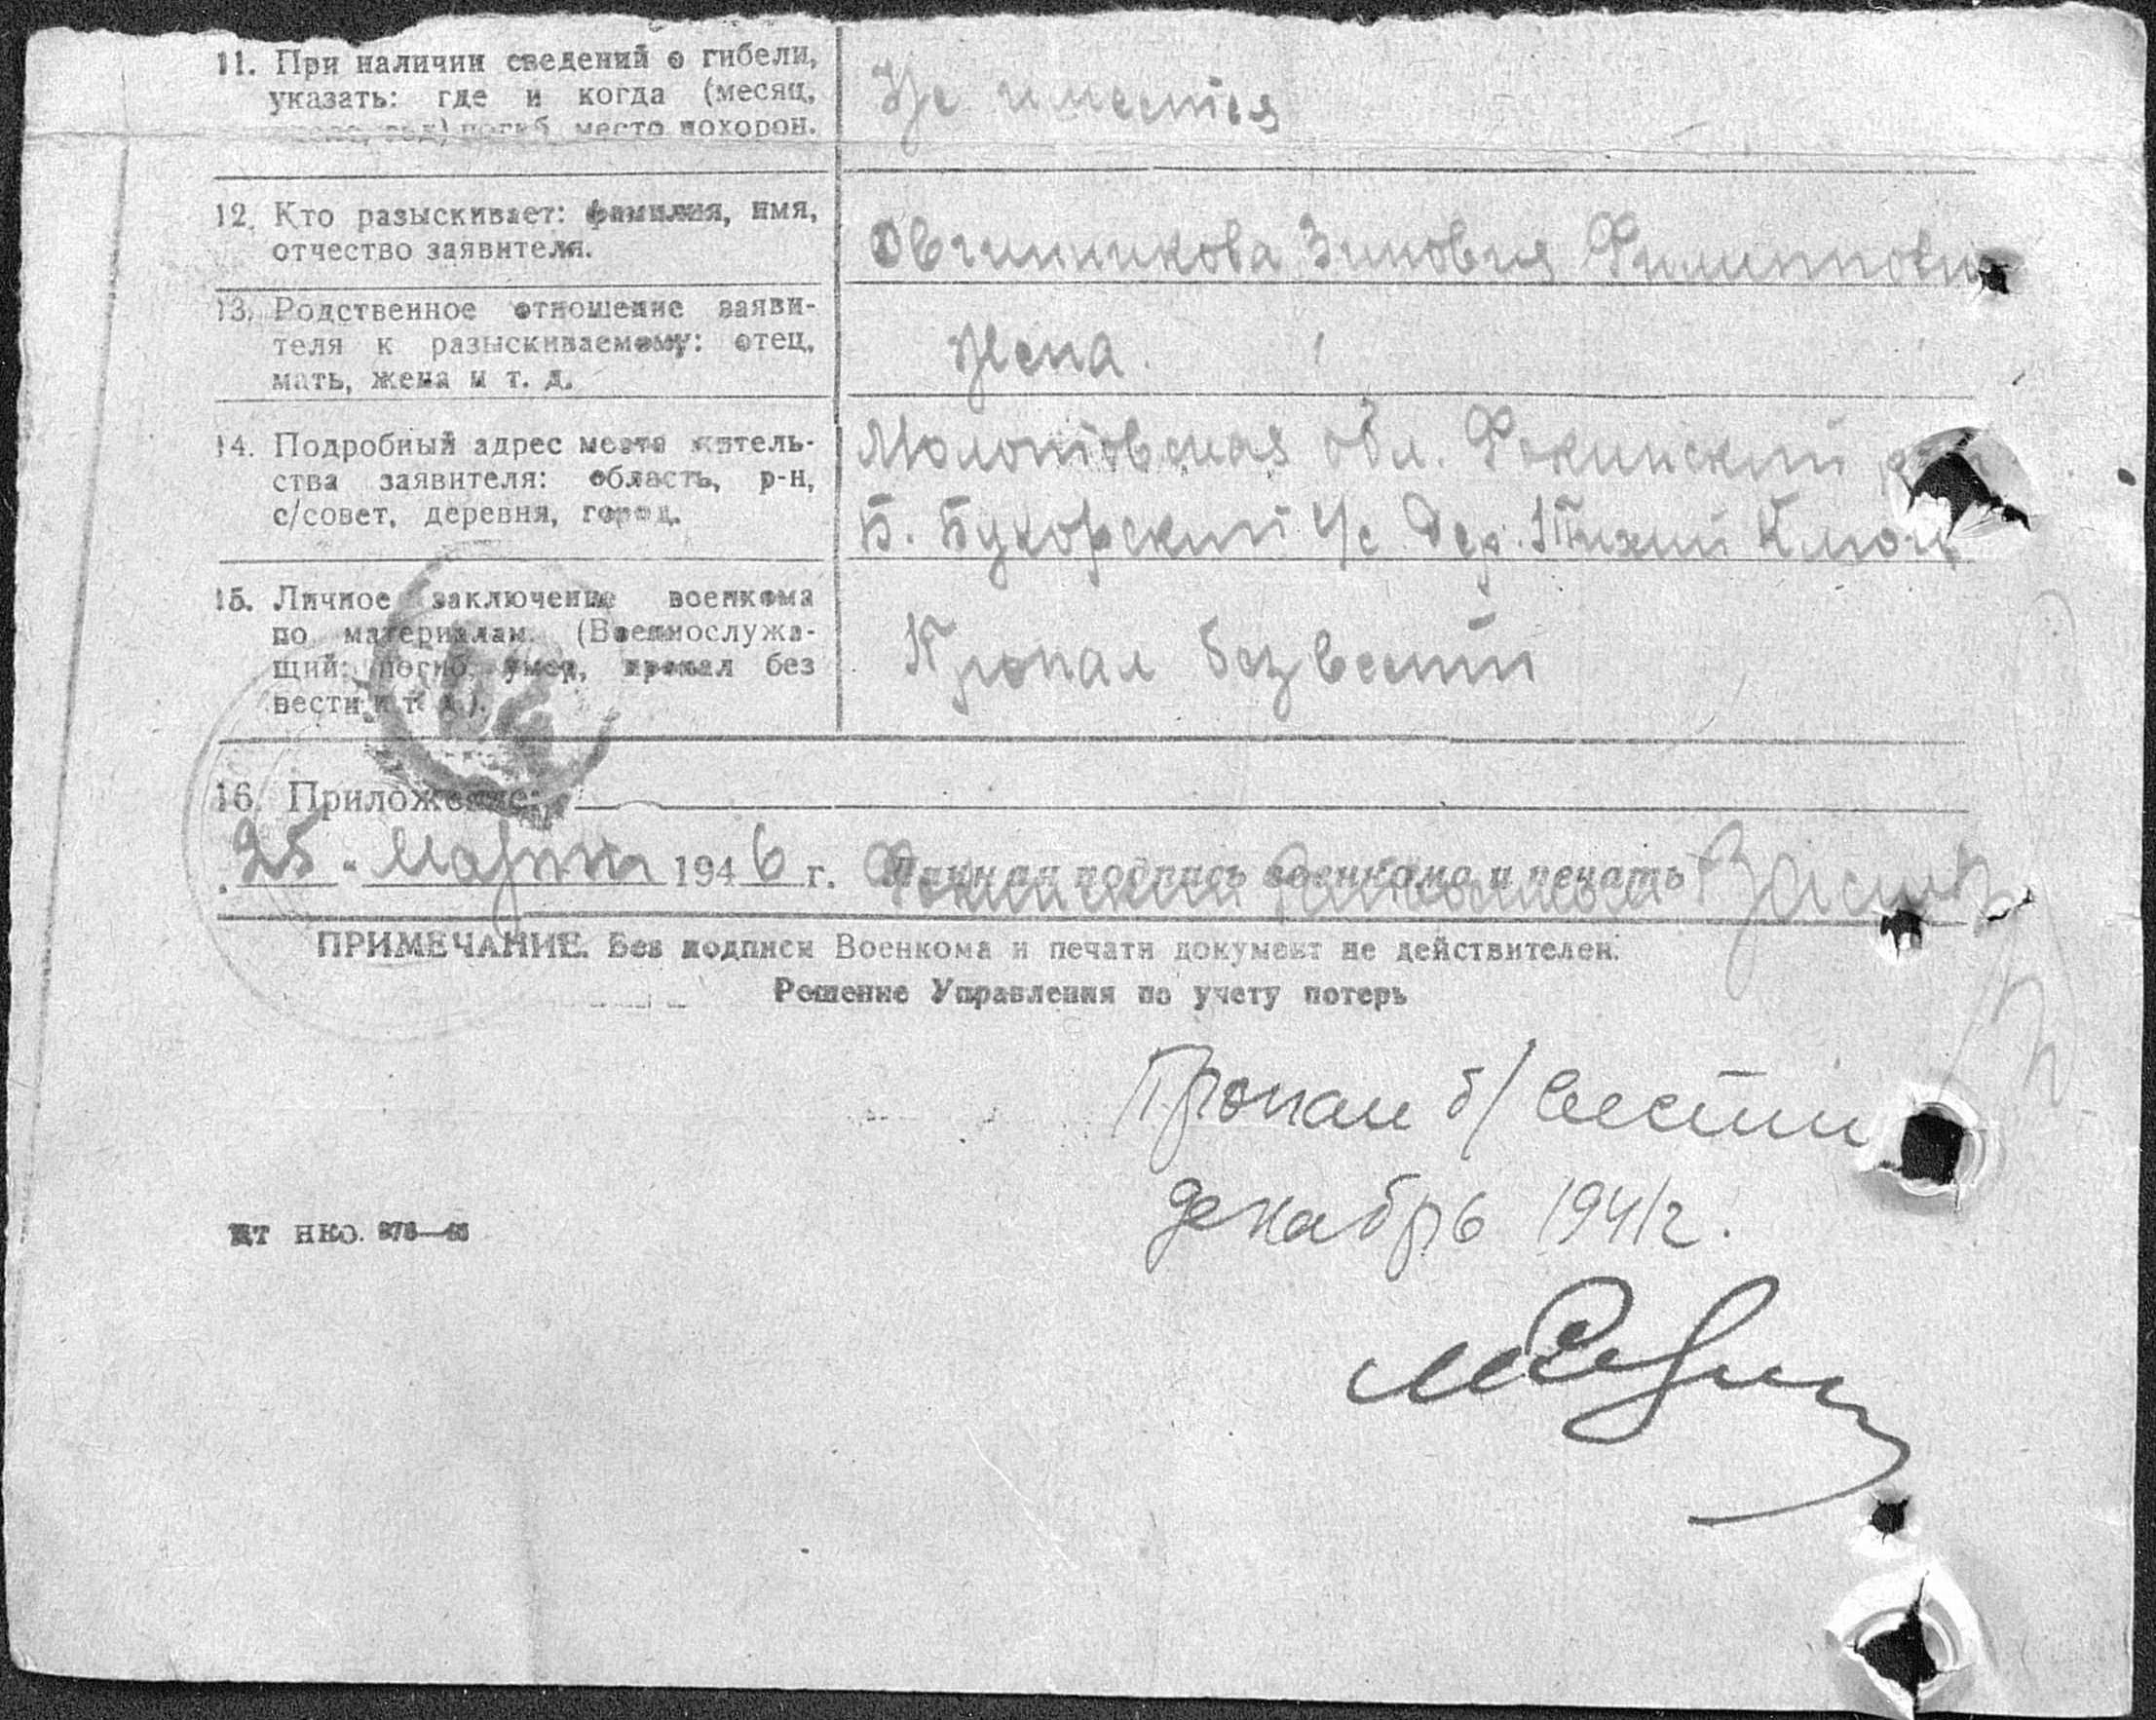 11. При наличии сведений о гибели,
указать: где и когда (месяц,
год) погиб, место похорон.
Не имеется
12. Кто разыскивает: фамилия, имя,
отчество заявителя.
Овчинникова Зиновия Филипповн
13. Родственное отношение заяви-
теля к разыскиваемому: отец,
мать, жена и т. д.
Жена.
14. Подробный адрес места житель-
ства заявителя: область, р-н,
с/совет, деревня, город.
Молотовская обл. Фокинский
Б. Букорский с/с дер. Тихий Ключ
15. Личное заключение военкома
по материалам. (Военнослужа-
щий: погиб, умер, пропал без
вести и т. д.).
Пропал безвести
16. Приложение:
"25" Марта 1946 г. Личная подпись военкома и печать
Фокинский
ПРИМЕЧАНИЕ. Без подписи Военкома и печати документ не действителен.
Решение Управления по учету потерь
Пропал б/вести
декабрь 1941г.
НКО.